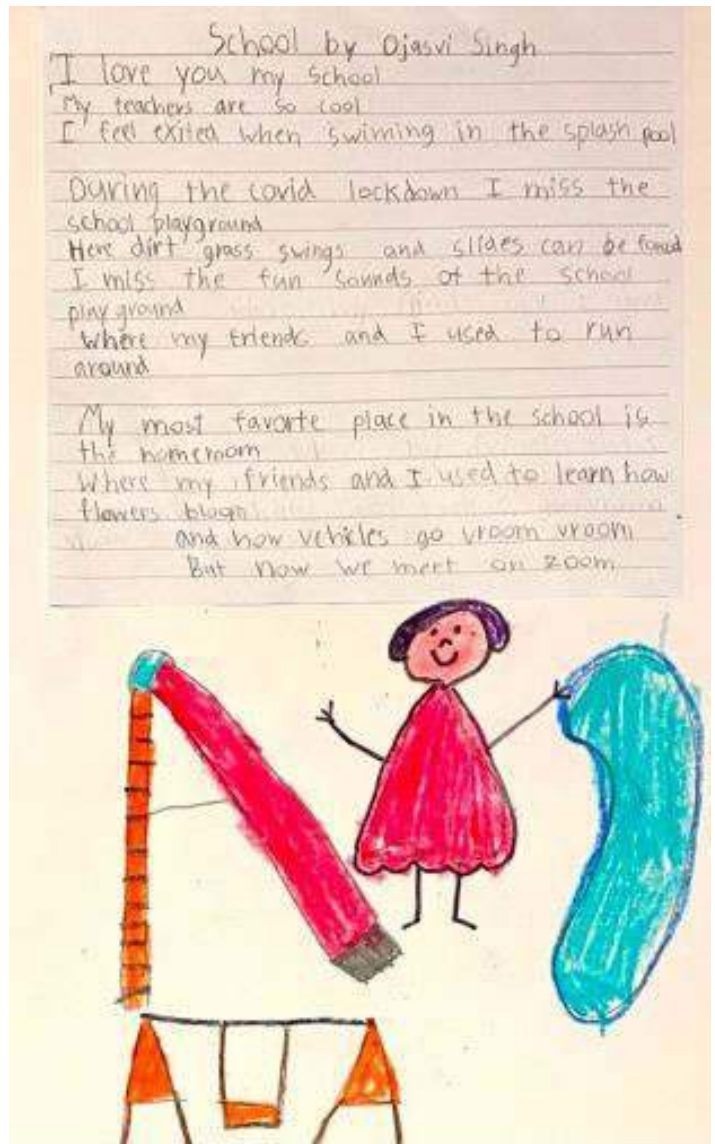 School by Ojasvi Singh
I love you my School
My teachers are so cool
I feel exited when swiming in the splash pool
During the covid lockdown I miss the
school playground
Here dirt grass swings and slides can be found
I miss the fun sounds of the school
play ground
Where my friends and I used to run
around
My most favorte place in the school is
the homeroom
Where my friends and I used to learn how
flowers bloom
and how vehicles go vroom vroom
But now we meet on zoom